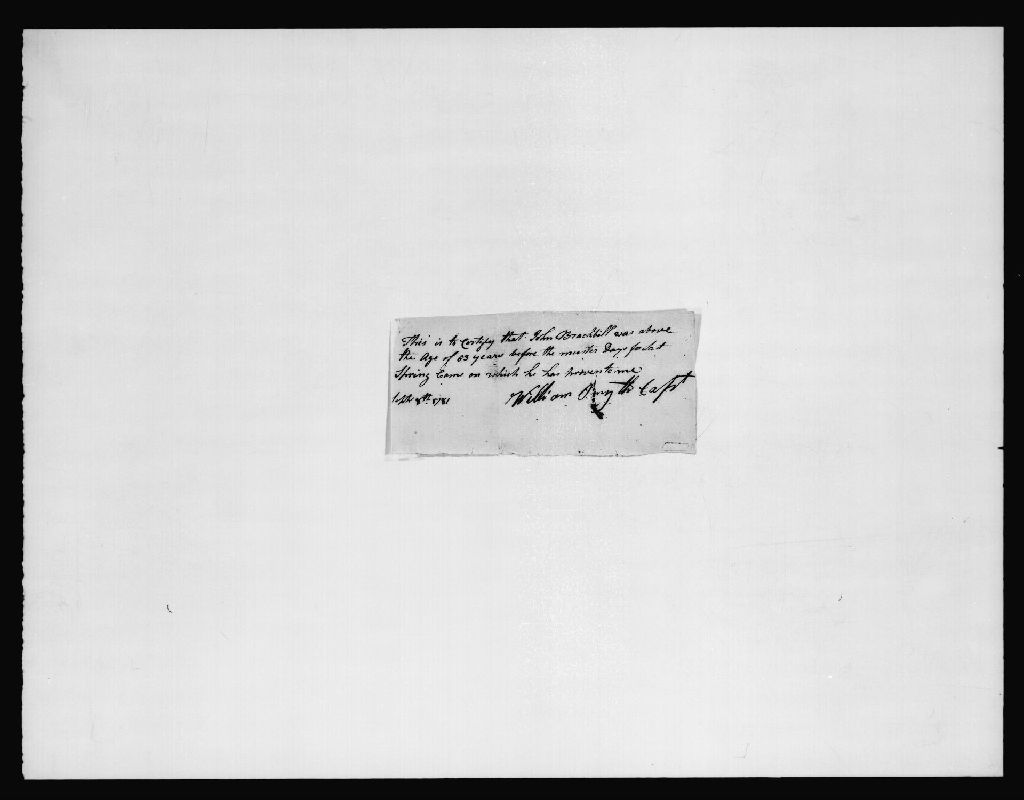 This is to Certify that John Brachbill was above
the Age of 53 years before the muster Days for last
Spring Came on which he has proven to me
Septr 8th 1781 William Smyth Capt